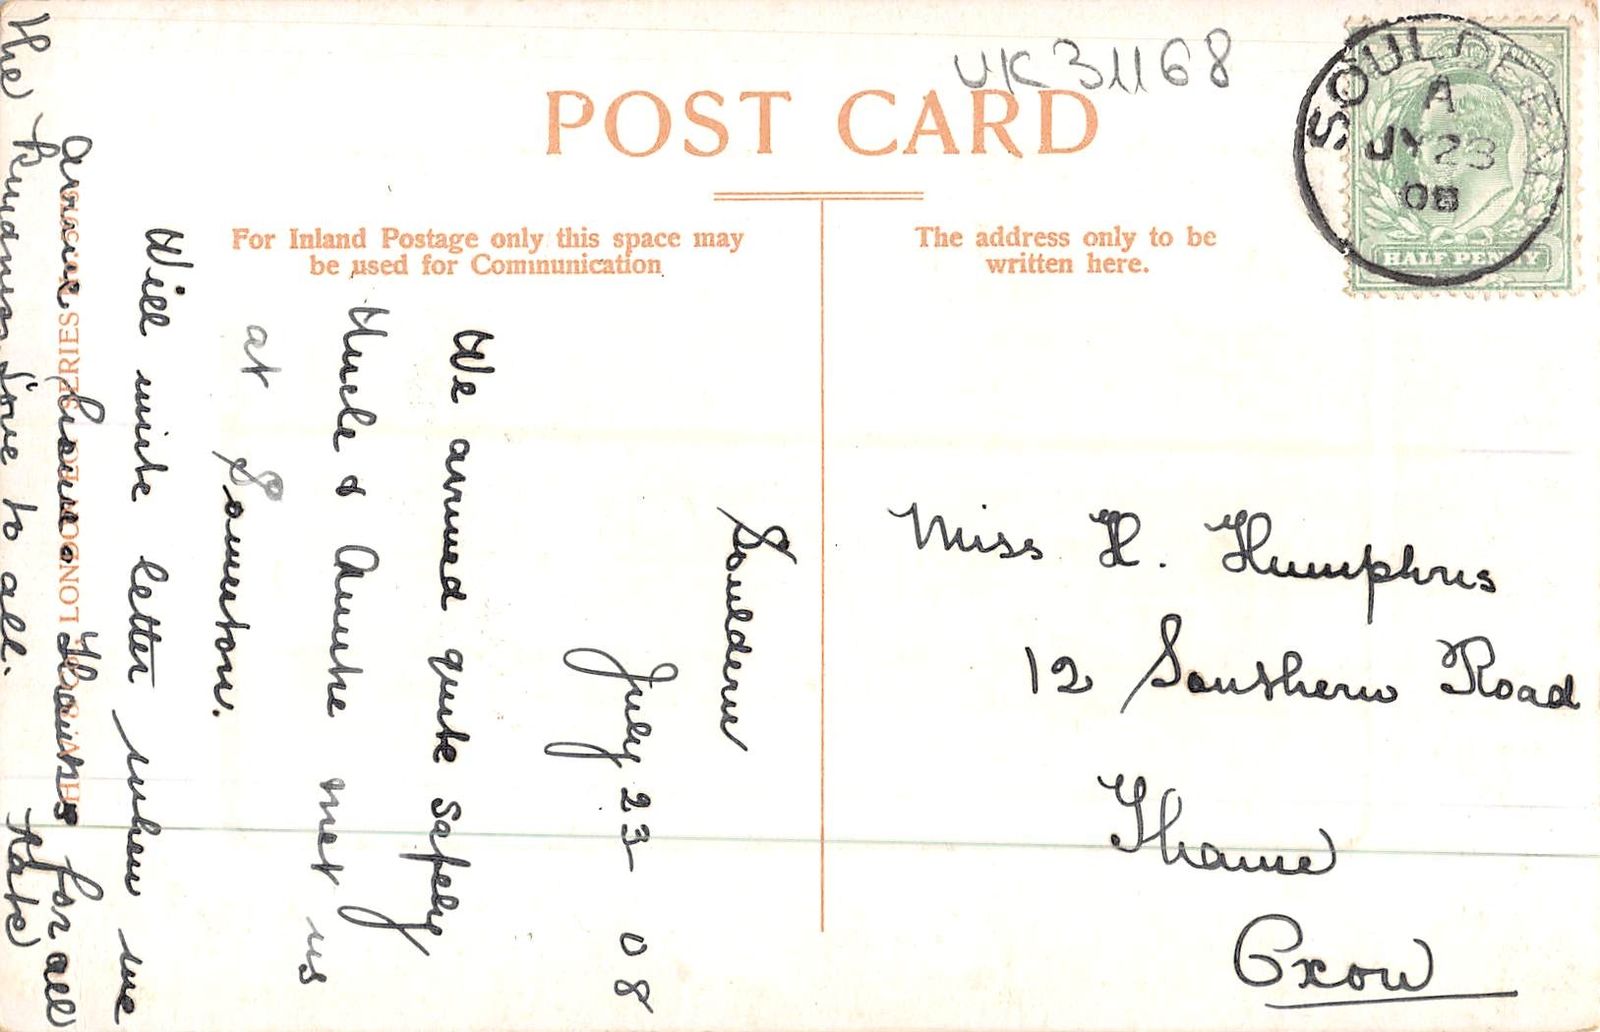 UK31168
POST CARD
For Inland Postage only this space may
be used for Communication
The address only to be
written here.
A
JY 23
08
HALF PENNY
Miss H. Humphris
12 Southern Road
Thame
Oxon
Souldern
July 23 - 08
We arrived quite safely
Uncle & Auntie met us
at Somerton.
Will write letter when we
arrive home. Thanks for all
the kindness. Love to all.
Kate
SERIES
LONDON